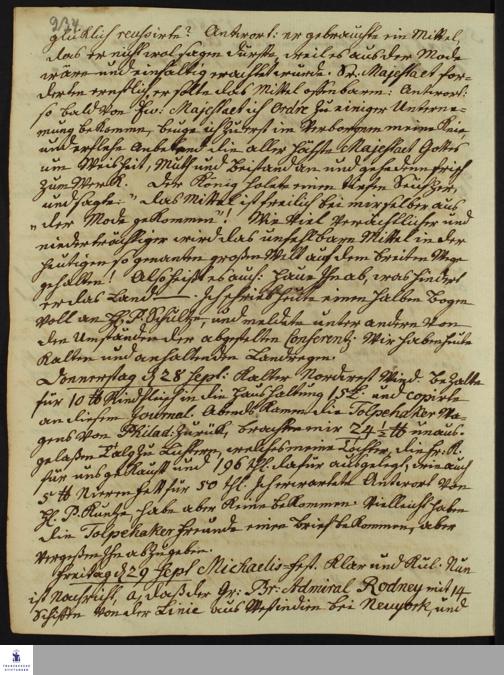 234
glücklich reussirte? Antwort: er gebrauchte ein Mittel,
das er nicht wol sagen durfte, weil es aus der Mode
wäre und einfältig erachtet würde. Sr. Majestaet for-
derten ernstlich er solte das Mittel offenbaren: Antwort:
so bald von Ew: Majestaet ich Ordre zu einiger Unterne-
mung bekomme, beuge ich zuerst im Verborgen meine Knie
und erflehe Anbetend die aller höchste Majestaet Gottes
um Weisheit, Muth und Beistand an und gehe denn frisch
zum Werk. Der König holete einen tiefen Seufzer,
und sagte: "das Mittel ist freilich bei mir selber aus
"der Mode gekommen"! Wie viel verächtlicher und
niederträchtiger wird das unfehlbare Mittel in der
heutigen so genanten großen Welt auf dem breiten Wege
gehalten! Also heißt es auch: haue ihn ab, was hindert
er das Land — . Ich schrieb heute einen halben Bogen
voll an H. P. Schultze, und meldete unter andern von
den Umständen der abgestelten Conferentz. Wir haben heute
kalten und anhaltenden Landregen.
Donnerstag d 28 Sept: kalter Nordwest Wind. Bezalte
für 10 tb Rindfleisch in die Haushaltung und copirte
an diesem Journal. Abends kamen die Tolpehaker Wa-
gens von Philad: zurück, brachten mir 24 ½ tb unaus-
gelaßen Talg zu Lichtern, welches meine Töchter, die fr: K.
für uns gekauft und dafür ausgelegt, wie auch
5 tb Nierenfett für Ich erwartete Antwort von
H. P. Kuntze habe aber keine bekommen. Vielleicht haben
die Tolpehaker freunde einen Brief bekommen, aber
vergeßen ihn abzugeben.
Freitag d 29 Sept Michaelis-fest. Klar und kül. Nun
ist Nachricht, a, daß der Gr: Br: Admiral Rodney mit 14
Schiffen von der Linie aus Westindien bei Neuyork, und
FRANCKESCHE
STIFTUNGEN